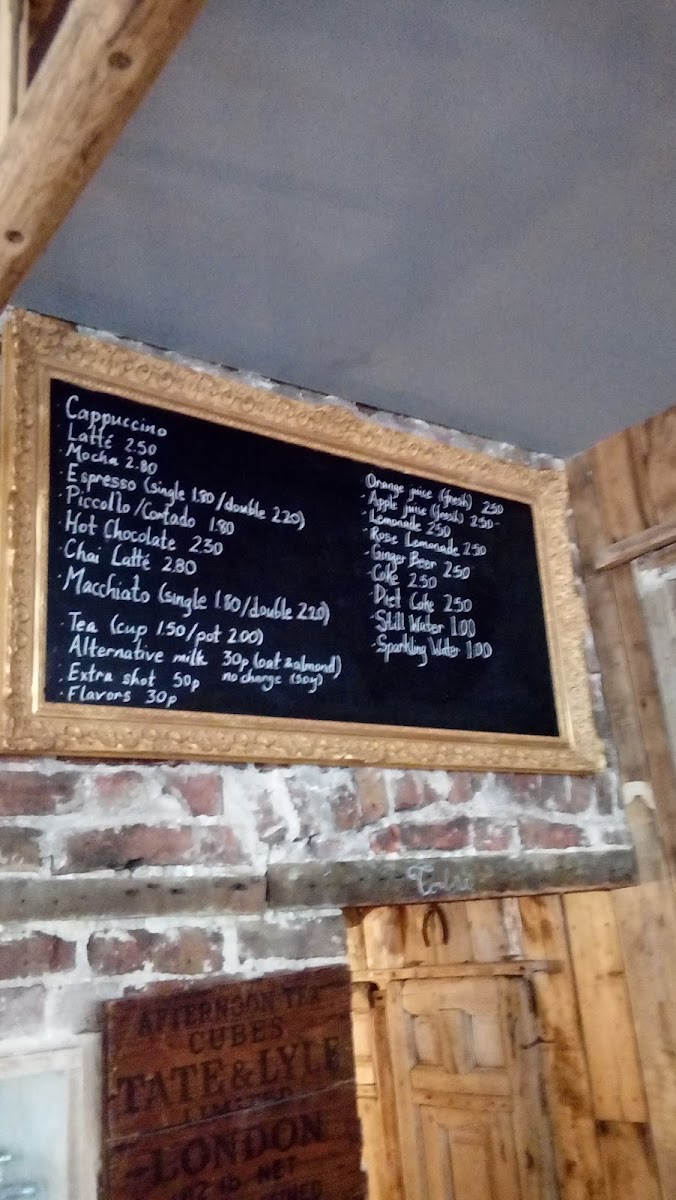 Cappuccino
· Latté 2.50
· Mocha 2.80
· Espresso (single 1.80/double 2.20)
· Piccollo/Cortado 1.80
· Hot Chocolate 2.30
· Chai Latté 2.80
· Macchiato (single 1.80/double 2.20)
· Tea (cup 1.50/pot 2.00)
· Alternative milk 30p (oat & almond)
no charge (soy)
· Extra shot 50p
· Flavors 30p
Orange juice (fresh) 2.50
· Apple juice (fresh) 2.50
· Lemonade 2.50
· Rose Lemonade 2.50
· Ginger Beer 2.50
· Coke 2.50
· Diet Coke 2.50
· Still Water 1.00
· Sparkling Water 1.00
AFTERNOON TEA
CUBES
TATE & LYLE
LIMITED
LONDON
NET